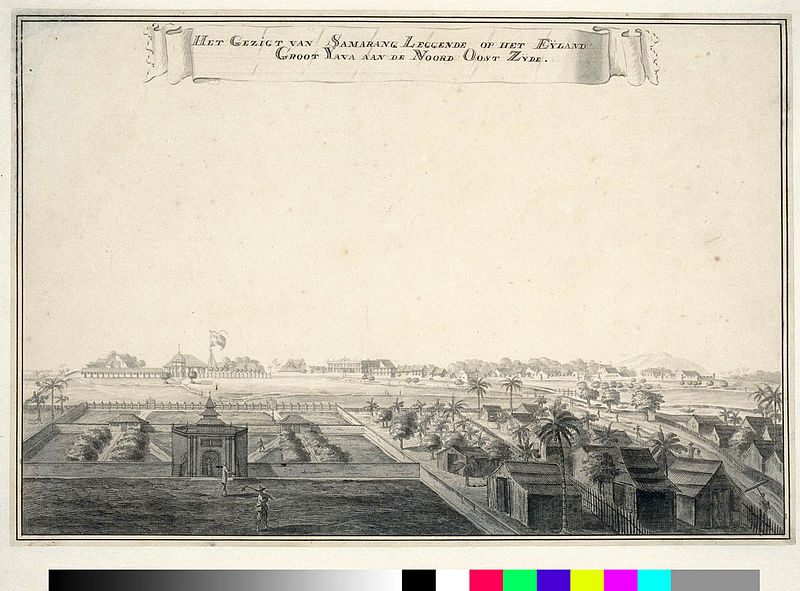 Het Gezigt van Samarang Leggende op het Eÿland
Groot Yava aan de Noord Oost Zyde.